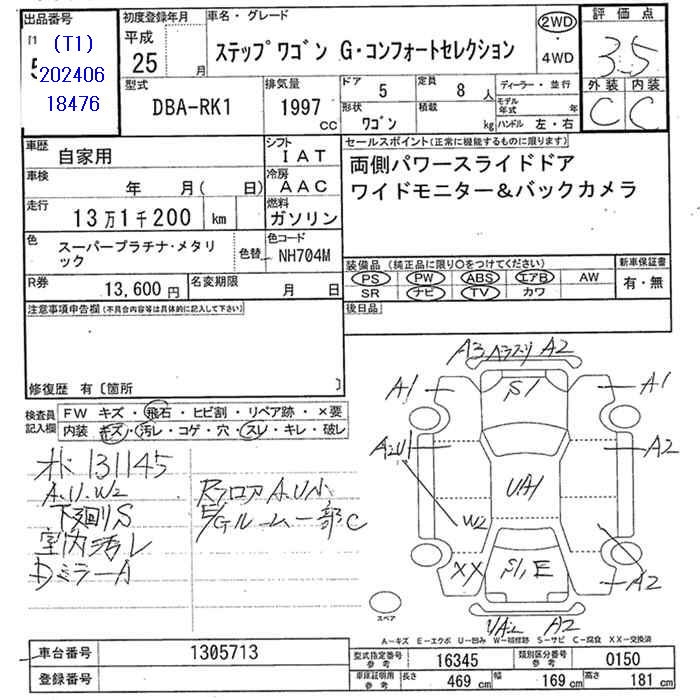 出品番号
(T1)
202406
18476
初度登録年月
平成
25 月
車名・グレード
ステップワゴン G・コンフォートセレクション
2WD
4WD
評価点
3.5
外装 内装
C C
型式
DBA-RK1
排気量
1997
CC
ドア
5
定員
8 人
形状
ワゴン
積載
kg
ディーラー・並行
モデル年式 年
ハンドル 左・右
車歴
自家用
シフト
IAT
車検
年 月( 日)
冷房
AAC
走行
13万1千200 km
燃料
ガソリン
色
スーパープラチナ・メタリック
色替
色コード
NH704M
R券
13,600 円
名変期限
月 日
セールスポイント(正常に機能するものに限ります)
両側パワースライドドア
ワイドモニター&バックカメラ
装備品(純正品に限り○をつけてください)
PS PW ABS エアB AW
SR ナビ TV カワ
新車保証書
有・無
後日品
注意事項申告欄(不具合内容等は具体的に記入して下さい)
修復歴 有〔箇所 〕
検査員
記入欄
FW キズ・飛石・ヒビ割・リペア跡・×要
内装 キズ・汚レ・コゲ・穴・スレ・キレ・破レ
131145
A.U.W2
下廻りS
室内汚レ
DミラーA
Rフロア A.U小
E/Gルーム一部C
A3 A2
A1 S1 A1
A2U1 A2
UA1
W2
XX S1,E A2
A2
スペア
A-キズ E-エクボ U-凹み W-補修跡 S-サビ C-腐食 XX-交換済
車台番号
1305713
登録番号
型式指定番号
参考
16345
類別区分番号
参考
0150
車庫証明用
参考
長さ 469 cm 幅 169 cm 高さ 181 cm